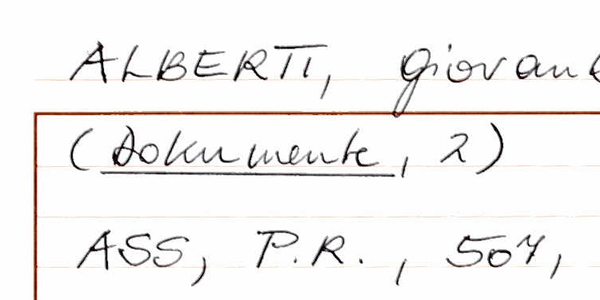 ALBERTI, Giovan
(Dokumente, 2)
ASS, P.R., 507,